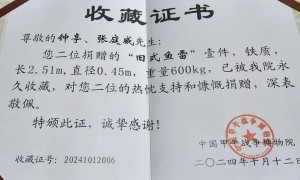 收藏证书
尊敬的钟亭、张庭威先生:
您二位捐赠的“旧式鱼雷”壹件,铁质,
长2.51m,直径0.45m,重量600kg,已被我院永
久收藏,对您二位的热忱支持和慷慨捐赠,深表
敬佩。
特颁此证,诚挚感谢!
中国甲午战争博物院
收藏证号:20241012006
二〇二四年十月十二日